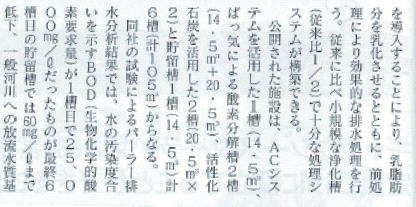 を導入することにより、乳脂肪
分を乳化させるとともに、前処
理により効果的な排水処理を行
う。従来に比べ小規模な浄化槽
(従来比1/2)で十分な処理シ
ステムが構築できる。
公開された施設は、ACシス
テムを活用した1槽(14・5㎥、
ばっ気による酸素分解槽2槽
(14・5㎥+20・5㎥、活性化
石炭を活用した2槽(20・5㎥×
2)と貯留槽1槽(14・5㎥)計
6槽(計105㎥からなる。
同社の試験によるパーラー排
水分析結果では、水の汚染度合
いを示すBOD(生物化学的酸
素要求量)が1槽目で25、0
00㎎/ℓだったものが最終6
槽目の貯留槽では60㎎/ℓまで
低下、一般河川への放流水質基